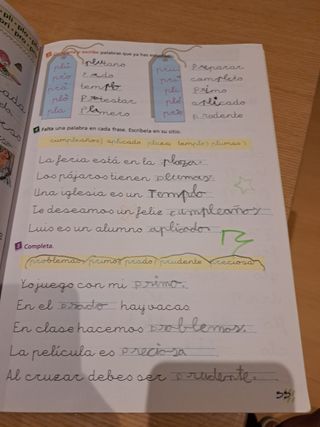 y escribe palabras que ya has
plu
pro
pla
plátano
prado
templo
protestar
planero
preparar
completo
primo
aplicado
prudente
4 Falta una palabra en cada frase. Escríbela en su sitio.
cumpleaños aplicado plaza templo plumas
La feria está en la plaza.
Los pájaros tienen plumas
Una iglesia es un Templo
Te deseamos un feliz cumpleaños
Luis es un alumno aplicado
5 Completa.
problemas primo prado prudente preciosa
Yo juego con mi primo.
En el prado hay vacas
En clase hacemos problemas.
La película es preciosa
Al cruzar debes ser prudente.